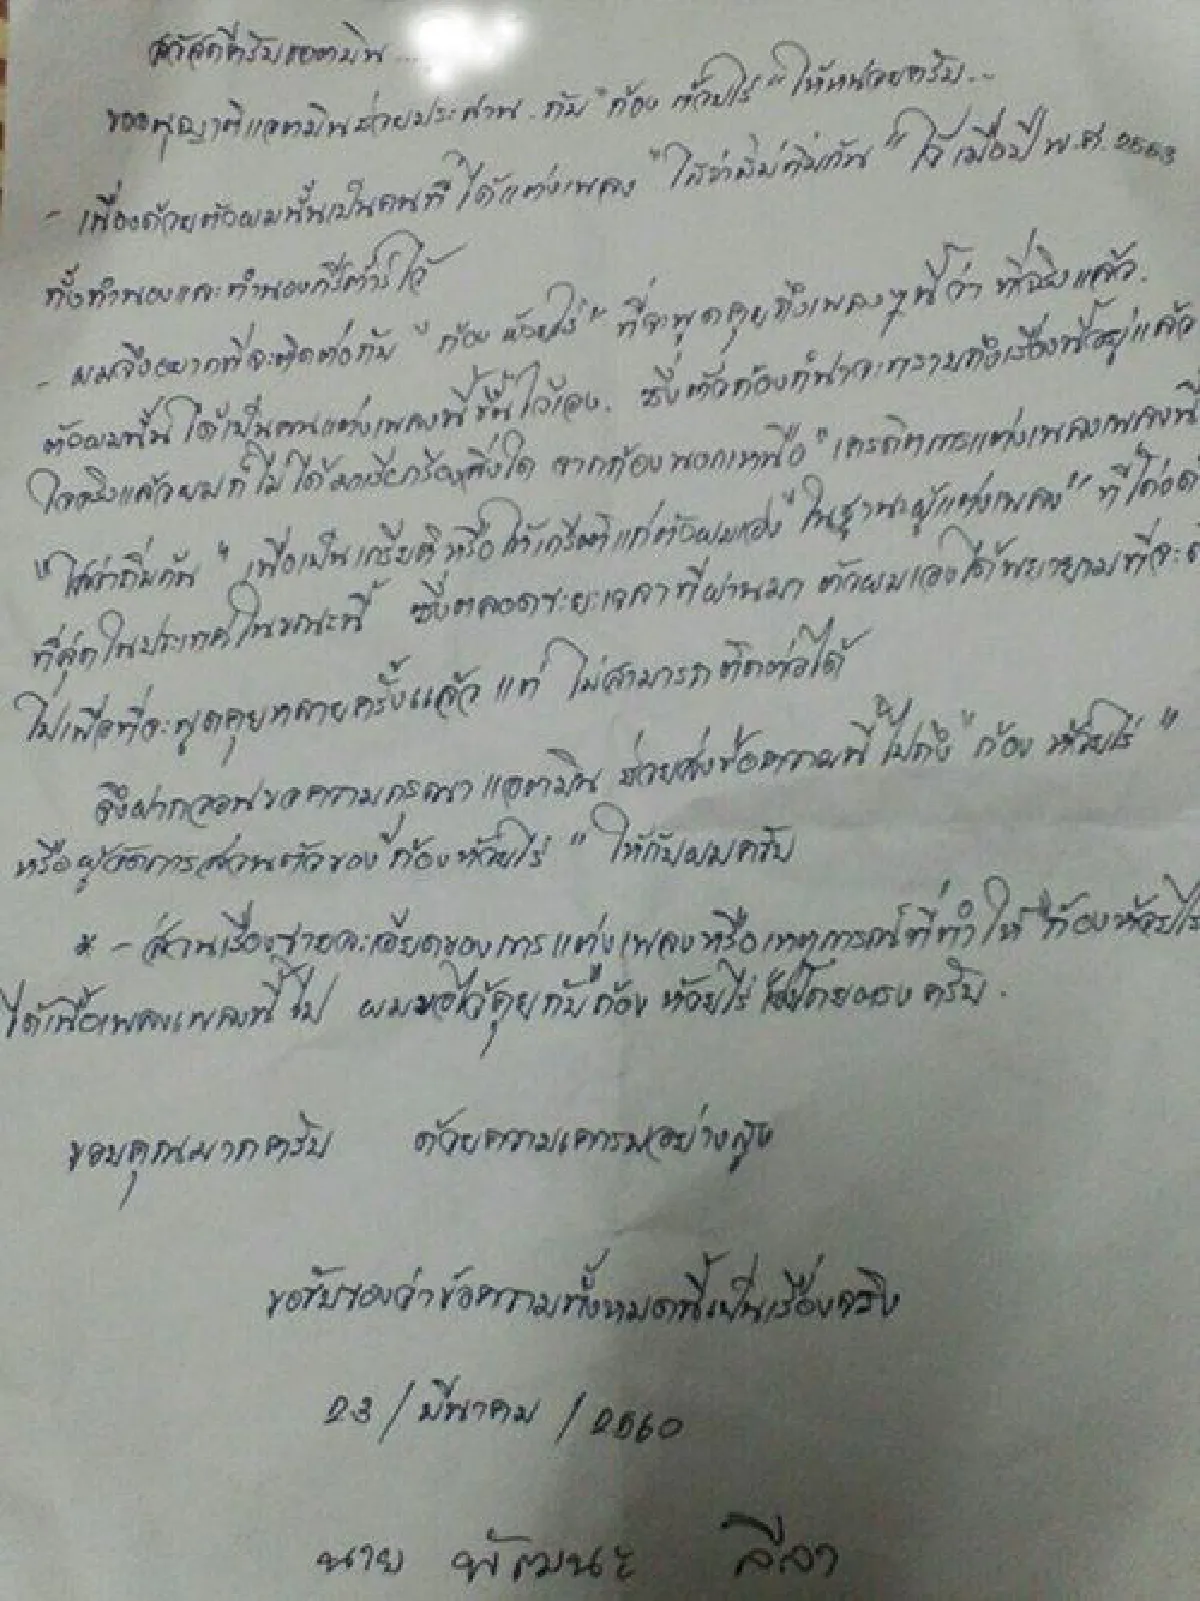 สวัสดีครับแอดมิน...
ขออนุญาติแอดมินช่วยประสาน.กับ "ก้อง ห้วยไร่" ให้หน่อยครับ...
- เนื่องด้วยตัวผมนั้นเป็นคนที่ได้แต่งเพลง "ไสว่าสิบ่ถิ่มกัน" ไว้เมื่อปี พ.ศ. 2553
ทั้งทำนองและทำนองกีร์ต้าร์ไว้
- ผมจึงอยากที่จะติดต่อกับ "ก้อง ห้วยไร่" ที่จะพูดคุยถึงเพลงๆนี้ว่า ที่จริงแล้ว.
ตัวผมนั้นได้เป็นคนแต่งเพลงนี้ขึ้นไว้เอง. ซึ่งตัวก้องก็น่าจะทราบถึงเรื่องนี้อยู่แล้ว
ใจจริงแล้วผมก็ไม่ได้มาเรียกร้องสิ่งใด จากก้องนอกเหนือ "เครดิตการแต่งเพลงเพลงนี้
"ไสว่าถิ่มกัน" เพื่อเป็นเกรียติหรือให้เกรียติแก่ตัวผมเอง "ในฐานะผู้แต่งเพลง" ที่โด่งดัง
ที่สุดในประเทศในขณะนี้ ซึ่งตลอดระยะเวลาที่ผ่านมา ตัวผมเองได้พยายามที่จะ
ไปเพื่อที่จะพูดคุยหลายครั้งแล้ว แต่ ไม่สามารถติดต่อได้
จึงฝากวอนขอความกรุณาแอดมิน ช่วยส่งข้อความนี้ไปถึง "ก้อง ห้วยไร่"
หรือผู้จัดการส่วนตัวของ "ก้องห้วยไร่" ให้กับผมครับ
* - ส่วนเรื่องรายละเอียดของการแต่งเพลงหรือเหตุการณ์ที่ทำให้ "ก้องห้วยไร่
ได้เนื้อเพลงเพลงนี้ไป ผมขอไว้คุยกับก้อง ห้วยไร่ โดยตรงครับ.
ขอบคุณมากครับ ด้วยความเคารพอย่างสูง
ขอรับรองว่าข้อความทั้งหมดนี้เป็นเรื่องจริง
23 / มีนาคม / 2560
นาย พัฒนะ ลีลา